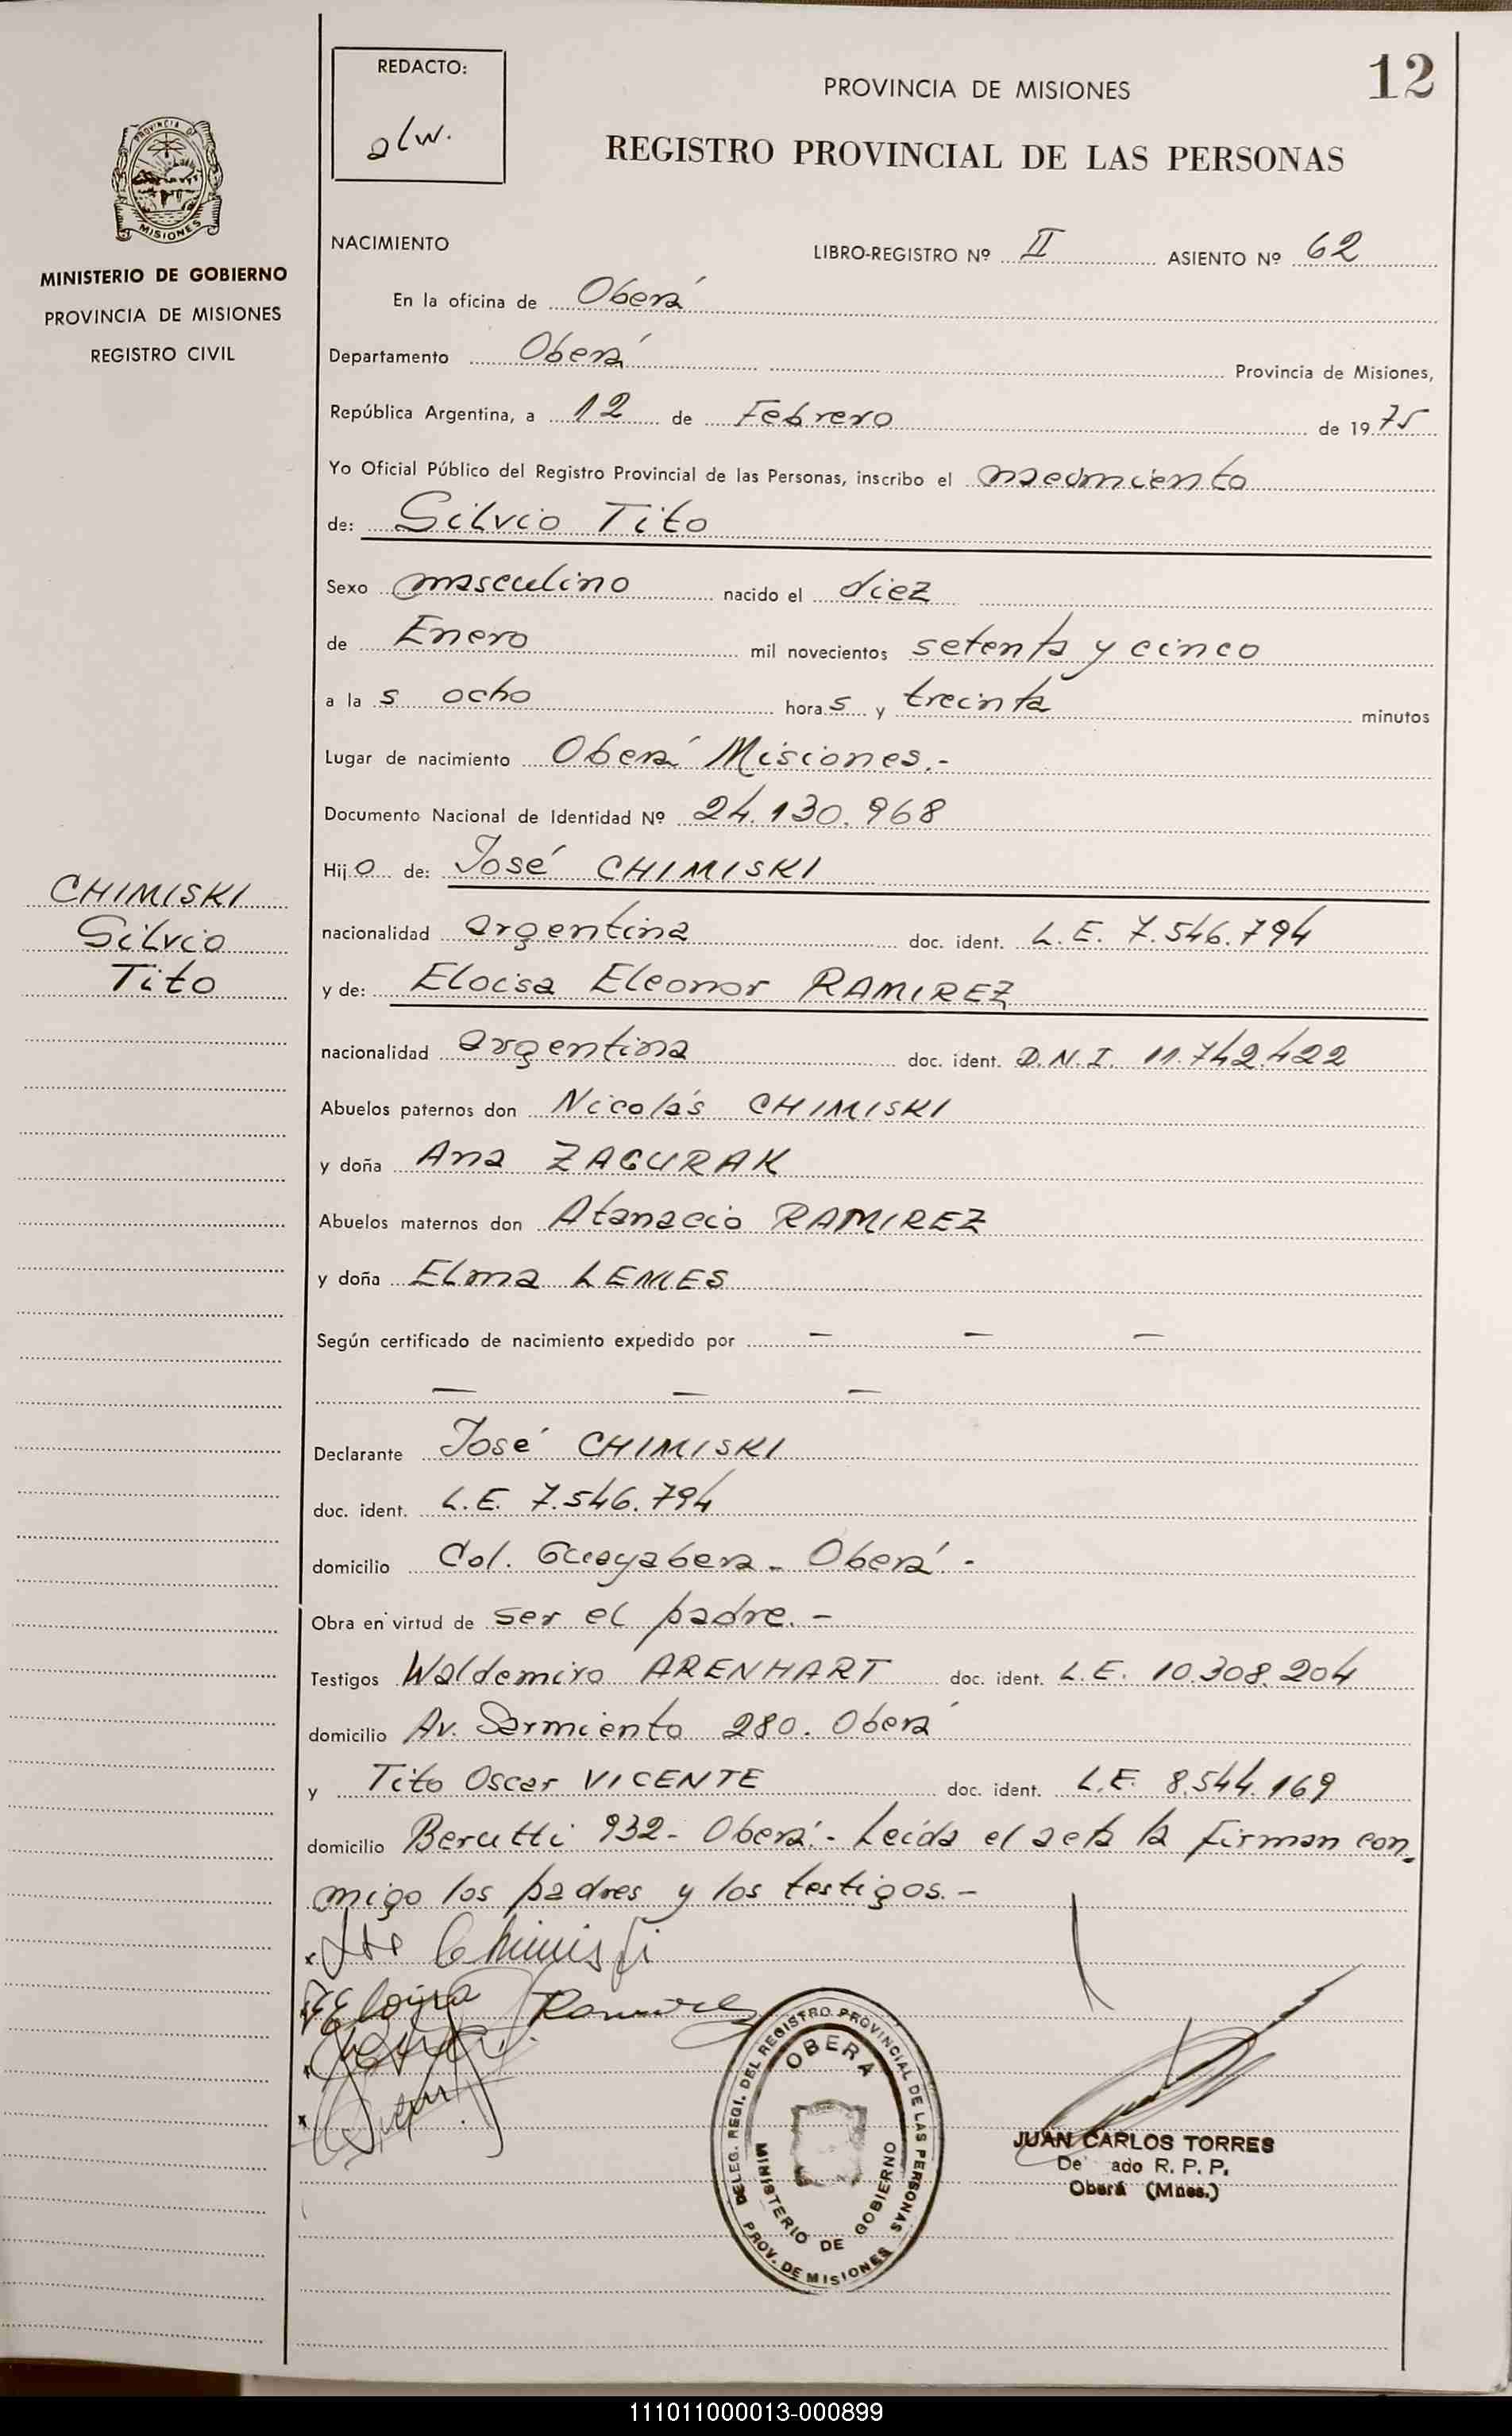 12
REDACTO:
alw.
PROVINCIA DE MISIONES
REGISTRO PROVINCIAL DE LAS PERSONAS
PROVINCIA DE
MISIONES
MINISTERIO DE GOBIERNO
PROVINCIA DE MISIONES
REGISTRO CIVIL
CHIMISKI
Silvio
Tito
NACIMIENTO LIBRO-REGISTRO Nº II ASIENTO Nº 62
En la oficina de Oberá
Departamento Oberá Provincia de Misiones,
República Argentina, a 12 de Febrero de 1975
Yo Oficial Público del Registro Provincial de las Personas, inscribo el nacimiento
de: Silvio Tito
Sexo masculino nacido el diez
de Enero mil novecientos setenta y cinco
a la s ocho hora s y treinta minutos
Lugar de nacimiento Oberá Misiones.-
Documento Nacional de Identidad Nº 24.130.968
Hijo de: José CHIMISKI
nacionalidad argentina doc. ident. L.E. 7.546.794
y de: Eloisa Eleonor RAMIREZ
nacionalidad argentina doc. ident. D.N.I. 11.742.422
Abuelos paternos don Nicolás CHIMISKI
y doña Ana ZAGURAK
Abuelos maternos don Atanacio RAMIREZ
y doña Elma LEMES
Según certificado de nacimiento expedido por — — —
— — —
Declarante José CHIMISKI
doc. ident. L.E. 7.546.794
domicilio Col. Guayabera - Oberá.-
Obra en virtud de ser el padre.-
Testigos Waldemiro ARENHART doc. ident. L.E. 10.308.204
domicilio Av. Sarmiento 280. Oberá
y Tito Oscar VICENTE doc. ident. L.E. 8.544.169
domicilio Berutti 932- Oberá.- Leída el acta la firman con-
migo los padres y los testigos.-
Chimiski
Eloisa Ramirez
DELEG. REGI. DEL REGISTRO PROVINCIAL DE LAS PERSONAS
OBERA
MINISTERIO DE GOBIERNO
PROV. DE MISIONES
JUAN CARLOS TORRES
De ado R. P. P.
Oberá (Mnes.)
111011000013-000899